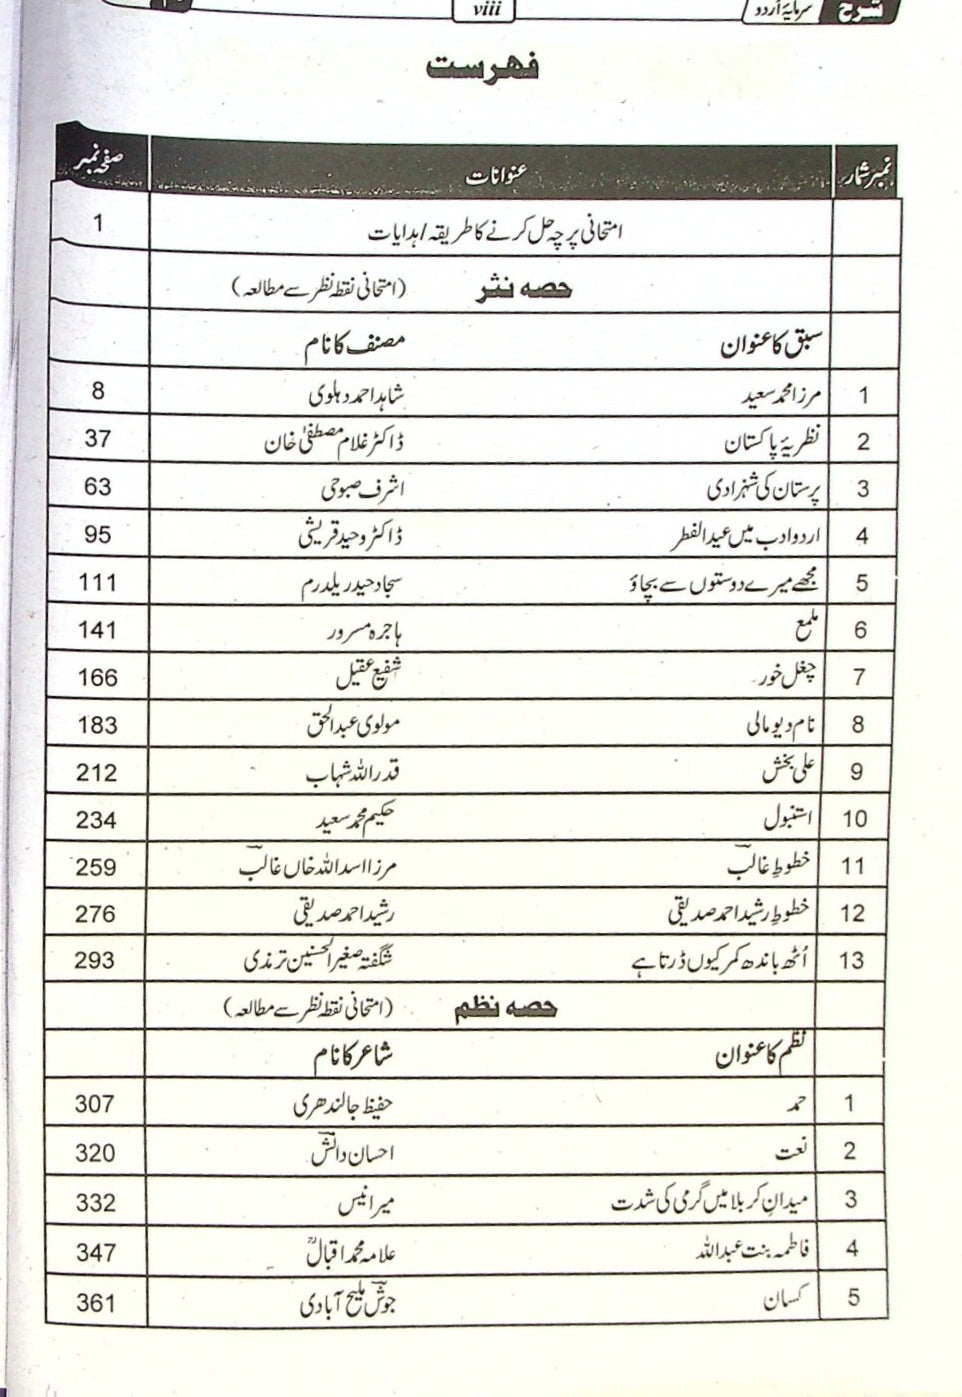 شرح سرمایۂ اردو viii
فہرست
نمبر شمار عنوانات صفحہ نمبر
امتحانی پرچہ حل کرنے کا طریقہ / ہدایات 1
حصہ نثر (امتحانی نقطۂ نظر سے مطالعہ)
سبق کا عنوان مصنف کا نام
1 مرزا محمد سعید شاہد احمد دہلوی 8
2 نظریۂ پاکستان ڈاکٹر غلام مصطفیٰ خان 37
3 پرستان کی شہزادی اشرف صبوحی 63
4 اردو ادب میں عید الفطر ڈاکٹر وحید قریشی 95
5 مجھے میرے دوستوں سے بچاؤ سجاد حیدر یلدرم 111
6 ملمع ہاجرہ مسرور 141
7 چغل خور شفیع عقیل 166
8 نام دیو مالی مولوی عبدالحق 183
9 علی بخش قدر اللہ شہاب 212
10 استنبول حکیم محمد سعید 234
11 خطوطِ غالبؔ مرزا اسد اللہ خاں غالبؔ 259
12 خطوطِ رشید احمد صدیقی رشید احمد صدیقی 276
13 اُٹھ باندھ کمر کیوں ڈرتا ہے شگفتہ صغیر الحسنین ترمذی 293
حصہ نظم (امتحانی نقطۂ نظر سے مطالعہ)
نظم کا عنوان شاعر کا نام
1 حمد حفیظ جالندھری 307
2 نعت احسان دانشؔ 320
3 میدانِ کربلا میں گرمی کی شدت میر انیس 332
4 فاطمہ بنت عبداللہ علامہ محمد اقبالؒ 347
5 کسان جوشؔ ملیح آبادی 361